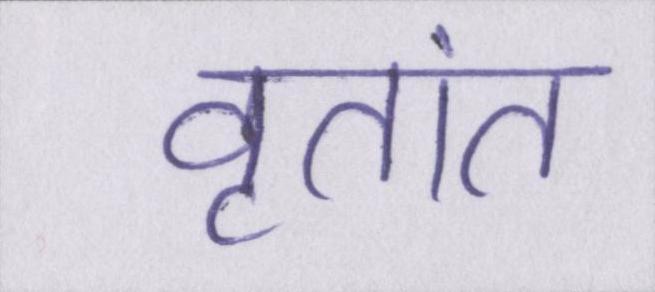 वृतांत